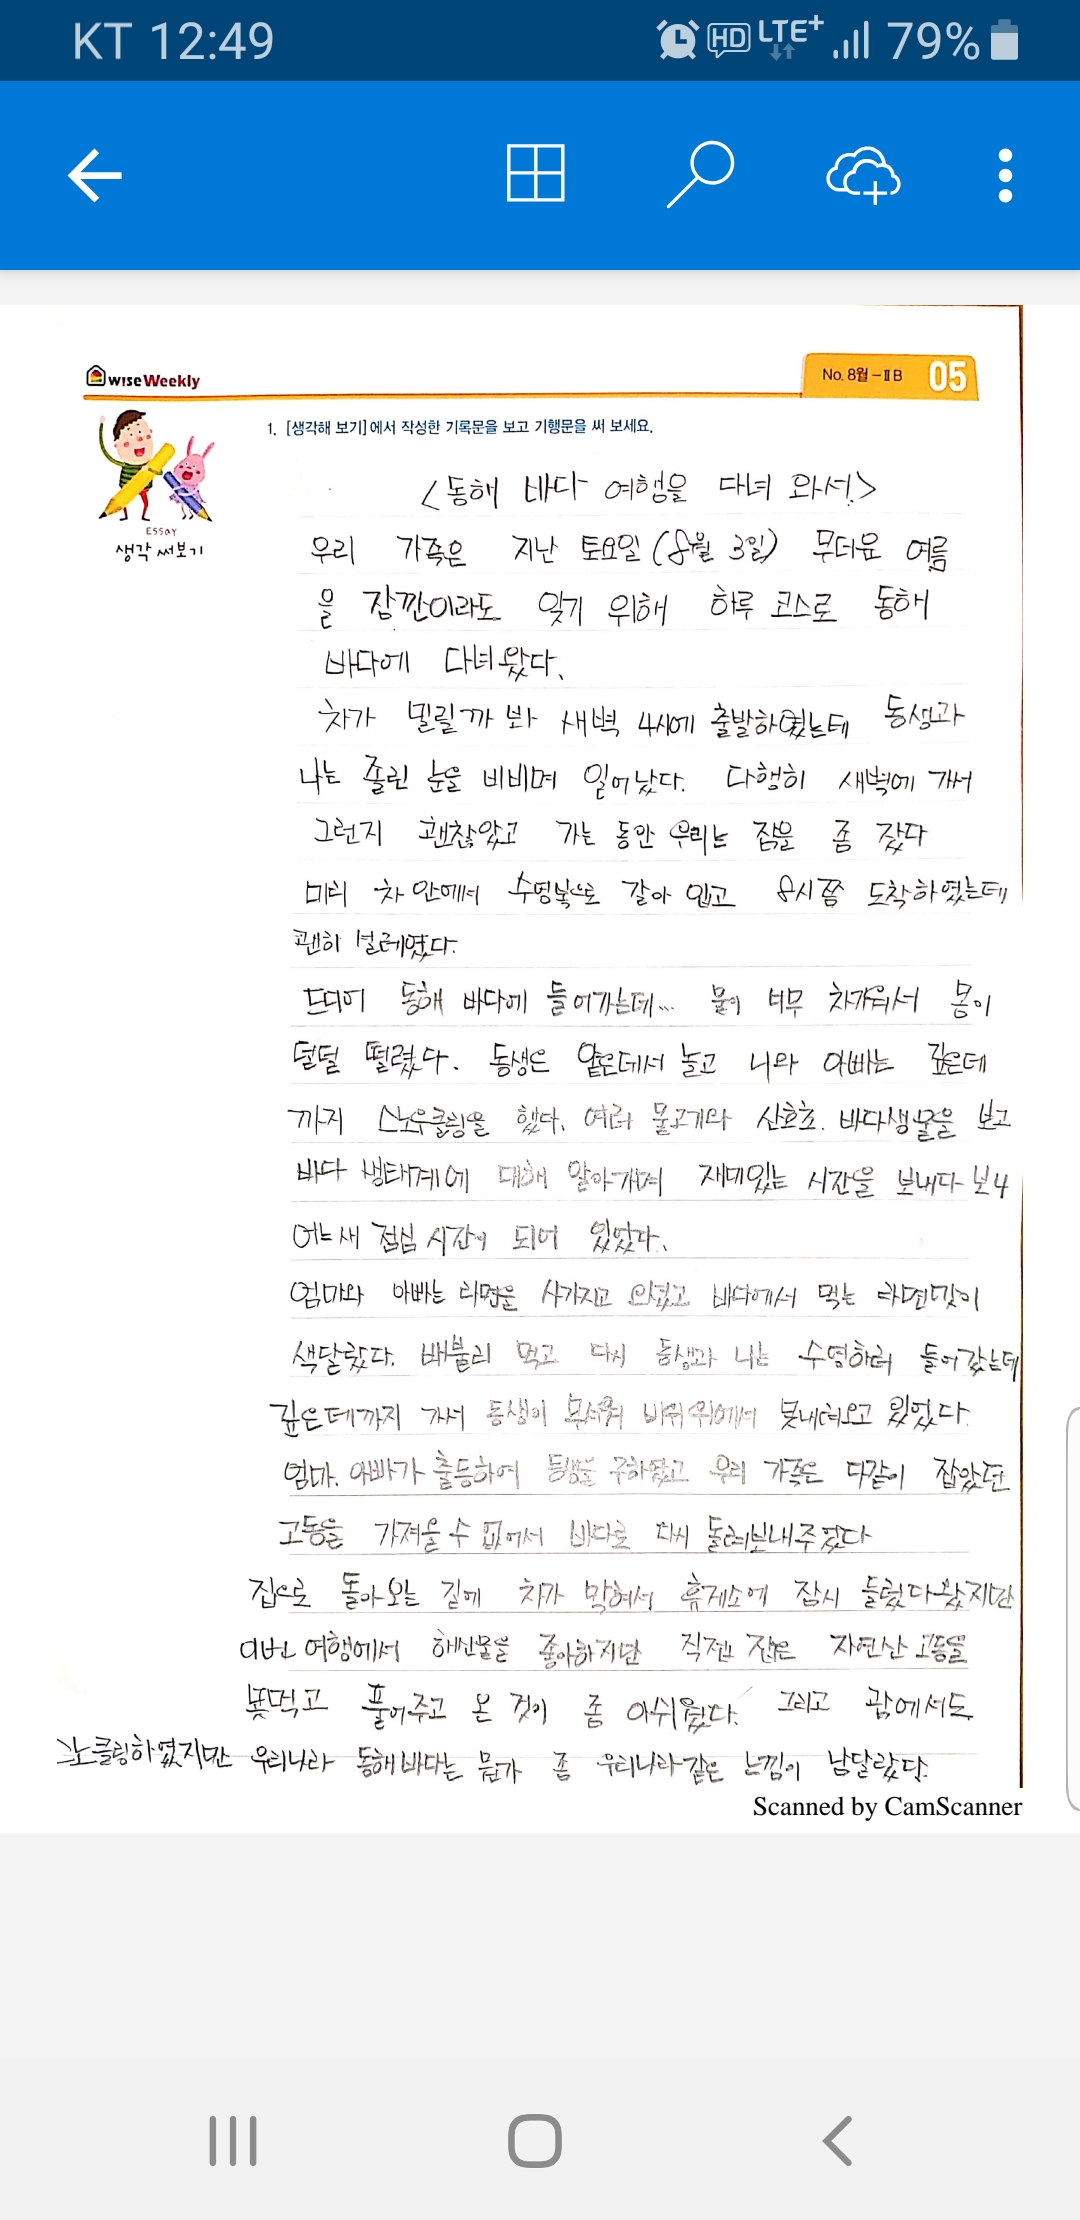 KT 12:49 HD LTE+ 79%
wise Weekly
No. 8월-ⅡB 05
1. [생각해 보기]에서 작성한 기록문을 보고 기행문을 써 보세요.
ESSAY
생각 써보기
<동해 바다 여행을 다녀 와서.>
우리 가족은 지난 토요일(8월 3일) 무더운 여름
을 잠깐이라도 잊기 위해 하루 코스로 동해
바다에 다녀왔다.
차가 밀릴까 봐 새벽 4시에 출발하였는데 동생과
나는 졸린 눈을 비비며 일어났다. 다행히 새벽에 가서
그런지 괜찮았고 가는 동안 우리는 잠을 좀 잤다
미리 차 안에서 수영복으로 갈아 입고 8시쯤 도착하였는데
괜히 설레였다.
드디어 동해 바다에 들어가는데... 물이 너무 차가워서 몸이
덜덜 떨렸다. 동생은 얕은데서 놀고 나와 아빠는 깊은데
까지 스노우쿨링을 했다. 여러 물고기와 산호초. 바다생물을 보고
바다 생태계에 대해 알아가며 재미있는 시간을 보내다 보니
어느새 점심 시간이 되어 있었다.
엄마와 아빠는 라면을 사가지고 오셨고 바다에서 먹는 라면맛이
색달랐다. 배불리 먹고 다시 동생과 나는 수영하러 들어갔는데
깊은데까지 가서 동생이 무서워 바위 위에서 못내려오고 있었다.
엄마. 아빠가 출동하여 동생을 구하였고 우리 가족은 다같이 잡았던
고동을 가져올 수 없어서 바다로 다시 돌려보내주었다
집으로 돌아오는 길에 차가 막혀서 휴게소에 잠시 들렀다왔지만
이번 여행에서 해산물을 좋아하지만 직접 잡은 자연산 고동을
못먹고 풀어주고 온 것이 좀 아쉬웠다. 그리고 괌에서도
스노클링하였지만 우리나라 동해바다는 뭔가 좀 우리나라같은 느낌이 남달랐다.
Scanned by CamScanner